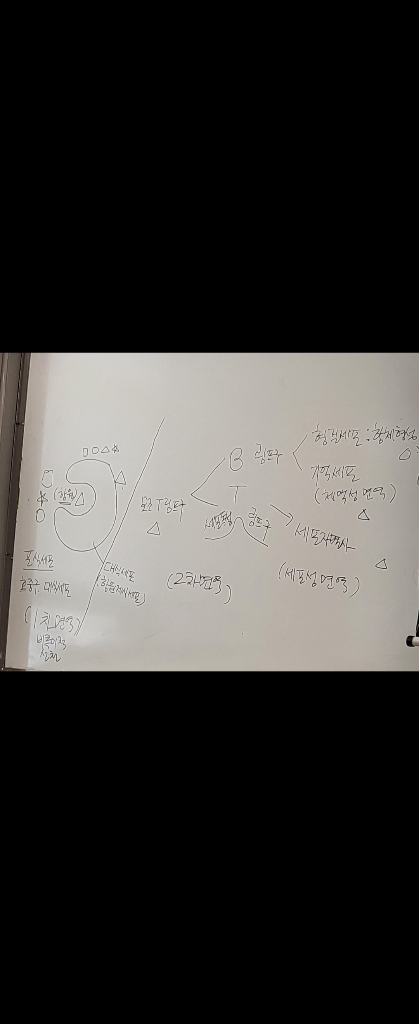 B 림프구
형질세포 : 항체형성
기억세포
(체액성 면역)
보조 T 림프구
T
세포독성 림프구
세포자멸사
(세포성 면역)
(2차면역)
(항원)
대식세포
(항원제시세포)
포식세포
호중구, 대식세포
(1차면역)
비특이적